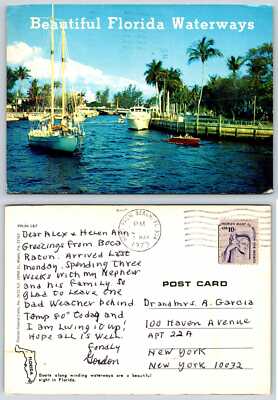 Beautiful Florida Waterways
Dear Alex & Helen Ann-
Greetings from Boca
Raton. Arrived Last
Monday. Spending Three
Weeks with My Nephew
and his Family. So
Glad to Leave one
Bad Weather behind
Temp 80° Today and
I am Living it up!
Hope all is Well.
Fondly
Gordon
Boats along winding waterways are a beautiful
sight in Florida.
POST CARD
Dr and Mrs. A. Garcia
100 Haven Avenue
APT 22A
New York
New York 10032
10c